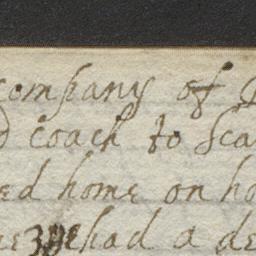 company of
coach to Sca
ed home on ho
had a de